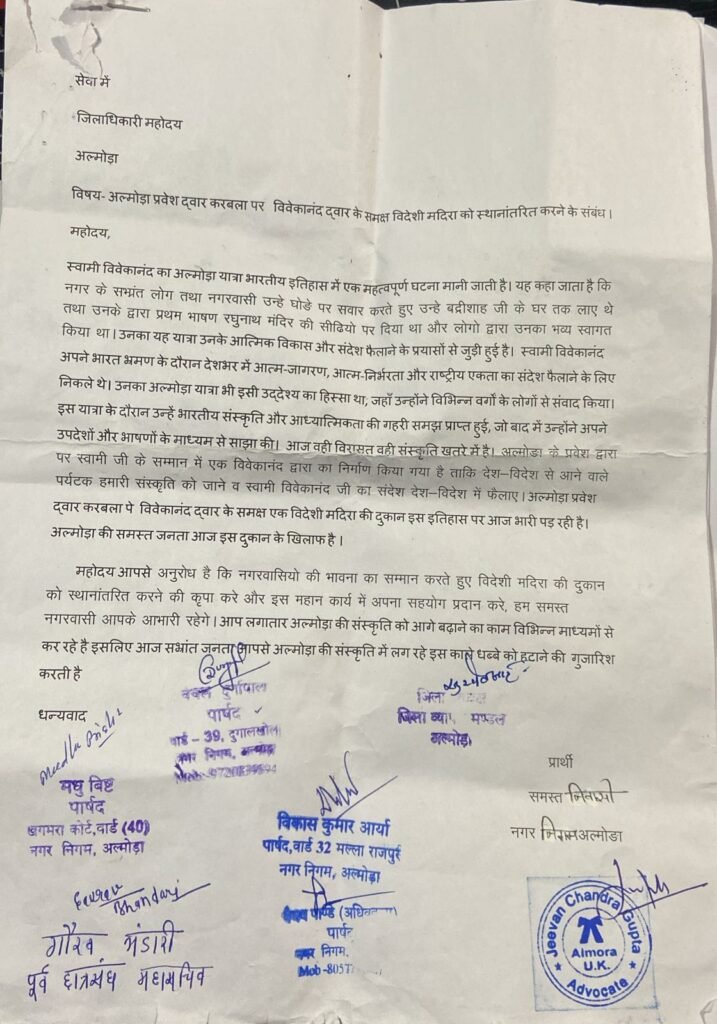 सेवा में
जिलाधिकारी महोदय
अल्मोड़ा
विषय- अल्मोड़ा प्रवेश द्वार करबला पर विवेकानंद द्वार के समक्ष विदेशी मदिरा को स्थानांतरित करने के संबंध।
महोदय,
स्वामी विवेकानंद का अल्मोड़ा यात्रा भारतीय इतिहास में एक महत्वपूर्ण घटना मानी जाती है। यह कहा जाता है कि
नगर के सभ्रंत लोग तथा नगरवासी उन्हे घोड़े पर सवार करते हुए उन्हे बद्रीशाह जी के घर तक लाए थे
तथा उनके द्वारा प्रथम भाषण रघुनाथ मंदिर की सीढियो पर दिया था और लोगो द्वारा उनका भव्य स्वागत
किया था। उनका यह यात्रा उनके आत्मिक विकास और संदेश फैलाने के प्रयासों से जुड़ी हुई है। स्वामी विवेकानंद
अपने भारत भ्रमण के दौरान देशभर में आत्म-जागरण, आत्म-निर्भरता और राष्ट्रीय एकता का संदेश फैलाने के लिए
निकले थे। उनका अल्मोड़ा यात्रा भी इसी उद्देश्य का हिस्सा था, जहाँ उन्होंने विभिन्न वर्गो के लोगों से संवाद किया।
इस यात्रा के दौरान उन्हें भारतीय संस्कृति और आध्यात्मिकता की गहरी समझ प्राप्त हुई, जो बाद में उन्होंने अपने
उपदेशों और भाषणों के माध्यम से साझा की। आज वही विरासत वही संस्कृति खतरे में है। अल्मोडा के प्रवेश द्वारा
पर स्वामी जी के सम्मान में एक विवेकानंद द्वारा का निर्माण किया गया है ताकि देश-विदेश से आने वाले
पर्यटक हमारी संस्कृति को जाने व स्वामी विवेकानंद जी का संदेश देश-विदेश में फैलाए। अल्मोड़ा प्रवेश
द्वार करबला पे विवेकानंद द्वार के समक्ष एक विदेशी मदिरा की दुकान इस इतिहास पर आज भारी पड़ रही है।
अल्मोड़ा की समस्त जनता आज इस दुकान के खिलाफ है।
महोदय आपसे अनुरोध है कि नगरवासियो की भावना का सम्मान करते हुए विदेशी मदिरा की दुकान
को स्थानांतरित करने की कृपा करे और इस महान कार्य में अपना सहयोग प्रदान करे, हम समस्त
नगरवासी आपके आभारी रहेगे। आप लगातार अल्मोड़ा की संस्कृति को आगे बढ़ाने का काम विभिन्न माध्यमों से
कर रहे है इसलिए आज सभ्रांत जनता आपसे अल्मोड़ा की संस्कृति में लग रहे इस काले धब्बे को हटाने की गुजारिश
करती है
धन्यवाद
दुर्गापाल
पार्षद
वार्ड - 39, दुगालखोला
नगर निगम, अल्मोड़ा
जिला
जिला मण्डल
अल्मोड़ा
प्रार्थी
समस्त निवासी
नगर निगम अल्मोडा
मधु बिष्ट
पार्षद
कोर्ट, वार्ड (40)
नगर निगम, अल्मोड़ा
विकास कुमार आर्या
पार्षद, वार्ड 32 मल्ला राजपुर
नगर निगम, अल्मोड़ा
Gourav
Bhandari
गौरव भंडारी
पूर्व छात्रसंघ महासचिव
पार्षद
नगर निगम,
Jeevan Chandra Gupta
Almora
U.K.
Advocate